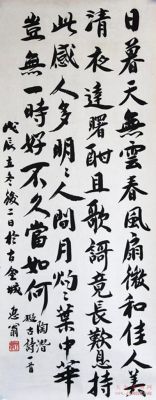 日暮天無雲春風扇微和佳人美
清夜達曙酣且歌謌竟長歎息持
此感人多明〻人間月灼〻葉中華
豈無一時好不久當如何
陶潛
擬古詩一首
戊辰立冬後二日於古金城